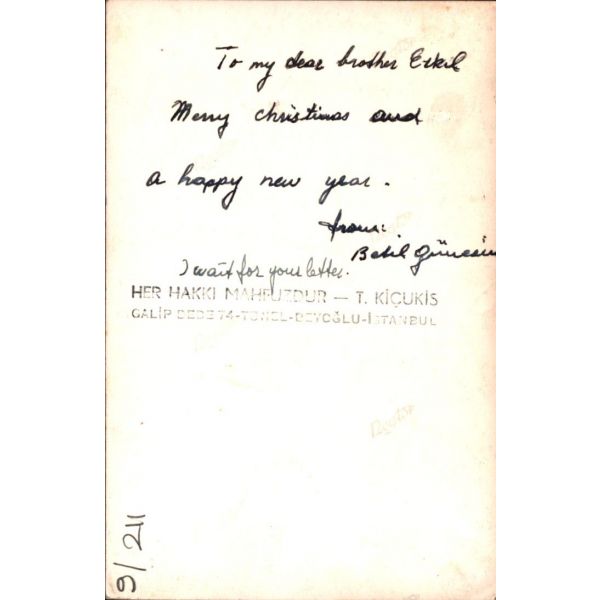 To my dear brother Erkil
Merry christmas and
a happy new year.
from:
Betil Günesin
I wait for your letter.
HER HAKKI MAHFUZDUR — T. KİÇUKİS
GALİP DEDE 74-TÜNEL-BEYOĞLU-İSTANBUL
9/211